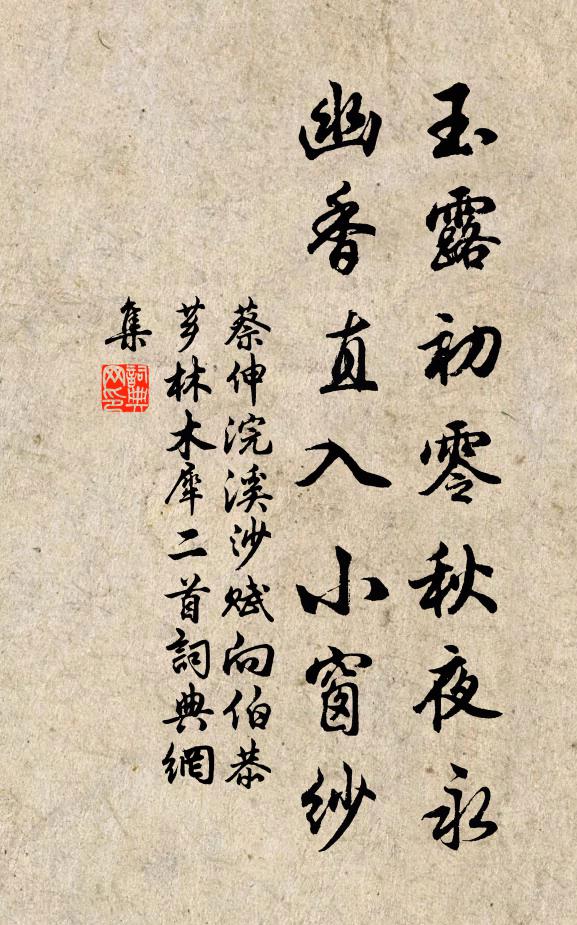 玉露初零秋夜永
幽香直入小窗紗
蔡伸浣溪沙賦向伯恭
芗林木犀二首詞典網
集
詞典
网印